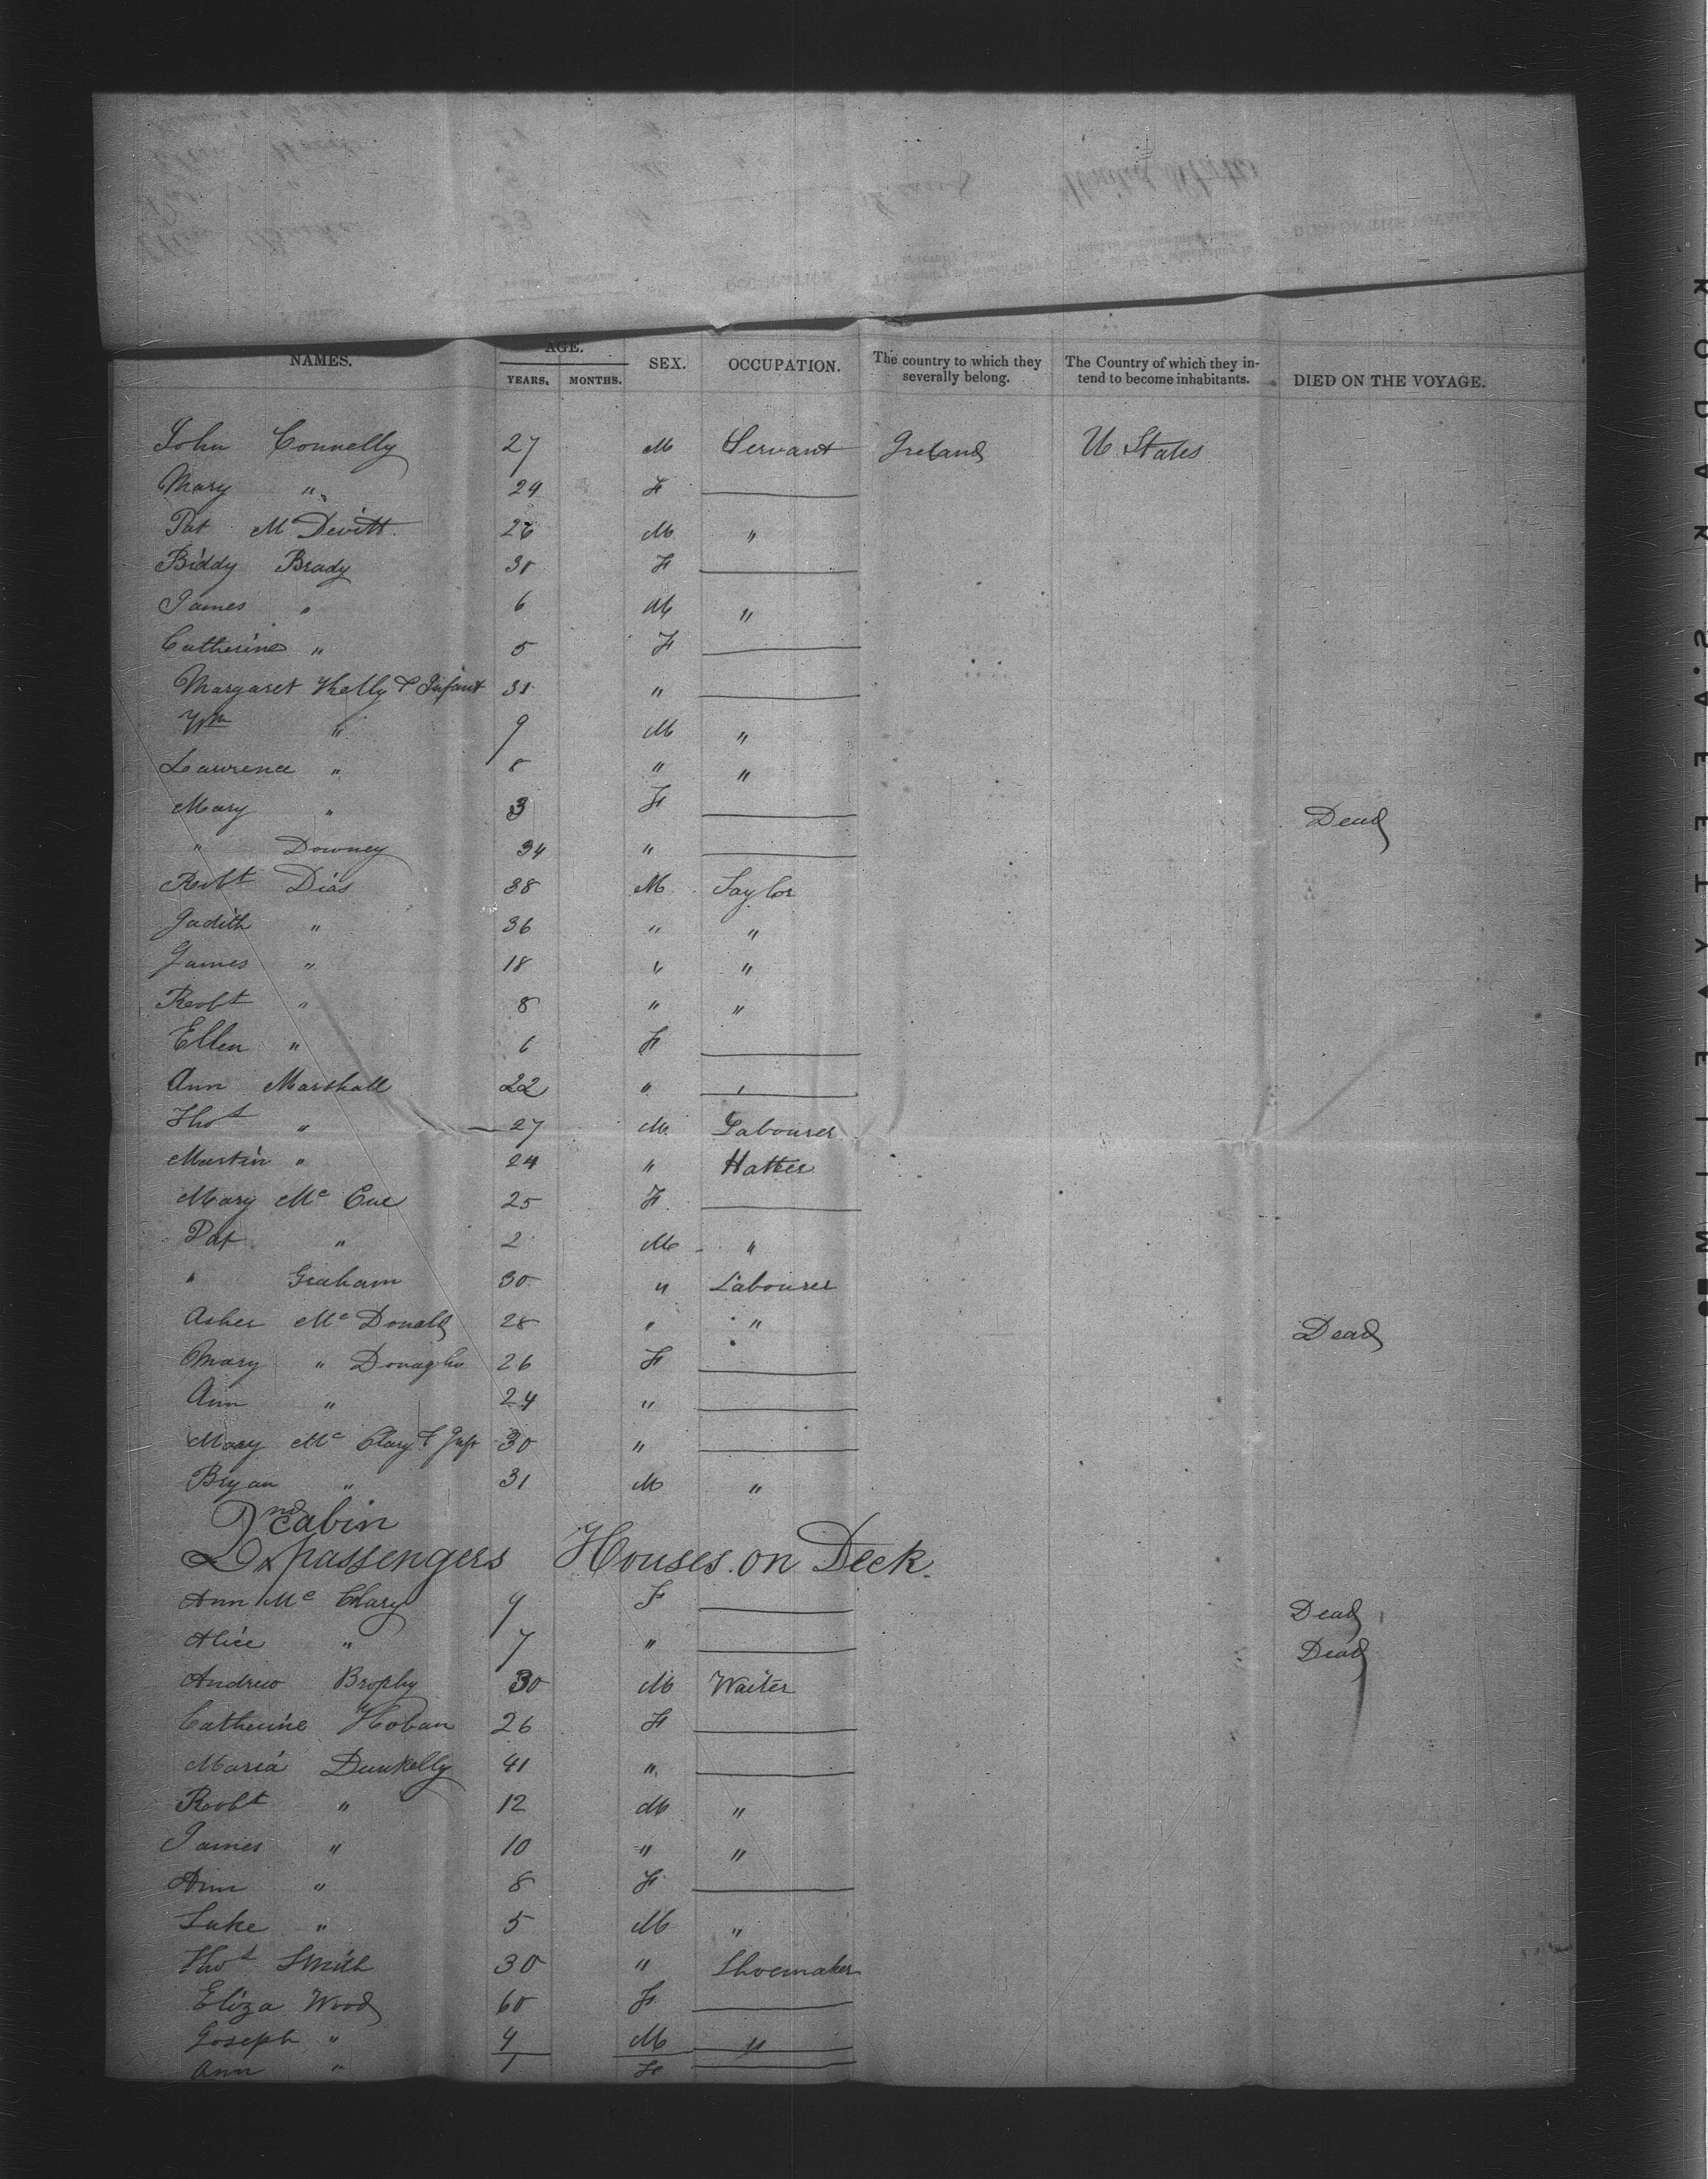 NAMES. AGE. YEARS. MONTHS. SEX. OCCUPATION. The country to which they severally belong. The Country of which they intend to become inhabitants. DIED ON THE VOYAGE.
John Connelly 27 M Servant Ireland U States
Mary " 24 F
Pat McDevitt 26 M "
Biddy Brady 30 F
James " 6 M "
Catherine " 5 F
Margaret Kelly & Infant 31 "
Wm " 9 M "
Lawrence " 8 " "
Mary " 3 F Dead
" Downey 34 "
Robt Dias 38 M Taylor
Judith " 36 " "
James " 18 " "
Robt " 8 " "
Ellen " 6 F
Ann Marshall 22 "
Thos " 27 M Labourer
Martin " 24 " Hatter
Mary Mc Cue 25 F
Pat " 2 M "
" Graham 30 " Labourer
Asher McDonald 28 " " Dead
Mary " Donagho 26 F
Ann " 24 "
Mary Mc Clary & Inft 30 "
Bryan " 31 M "
2nd cabin
passengers Houses on Deck.
Ann Mc Clary 9 F Dead
Alice " 7 " Dead
Andrew Brophy 30 M Waiter
Catherine Hoban 26 F
Maria Dunkelly 41 "
Robt " 12 M "
James " 10 " "
Ann " 8 F
Luke " 5 M "
Thos Smith 30 " Shoemaker
Eliza Wood 60 F
Joseph " 4 M "
Ann " 1 F